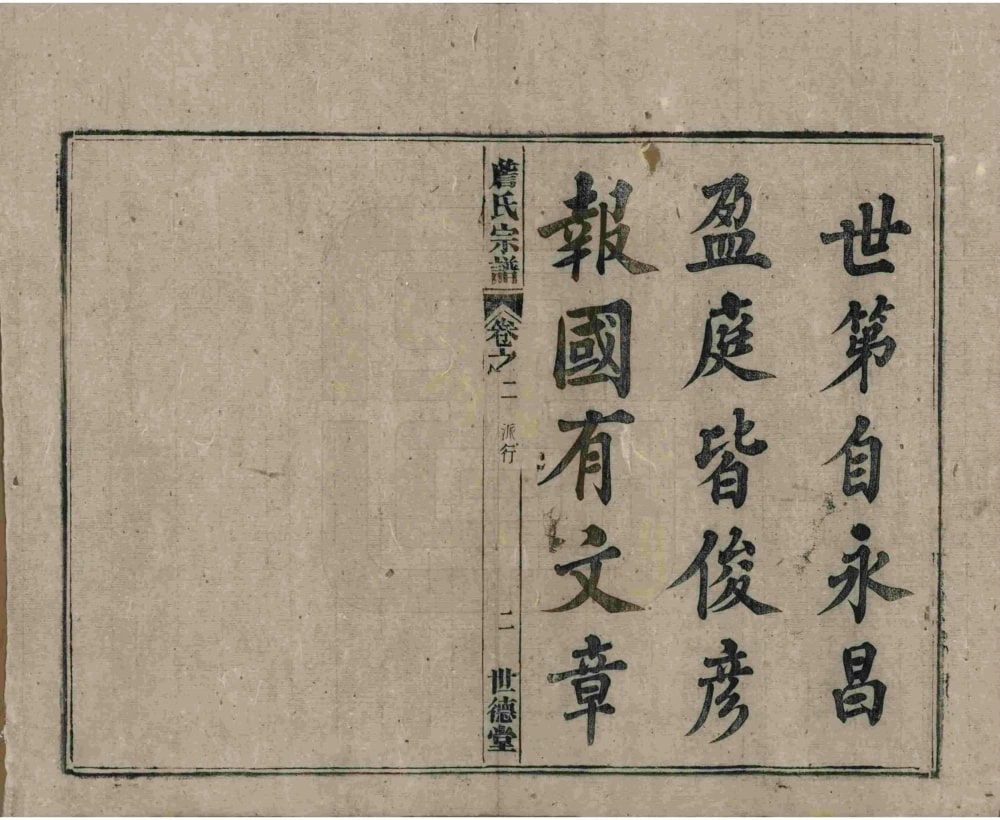 世第自永昌
盈庭皆俊彦
報國有文章
詹氏宗譜
卷之二
派行
二
世德堂